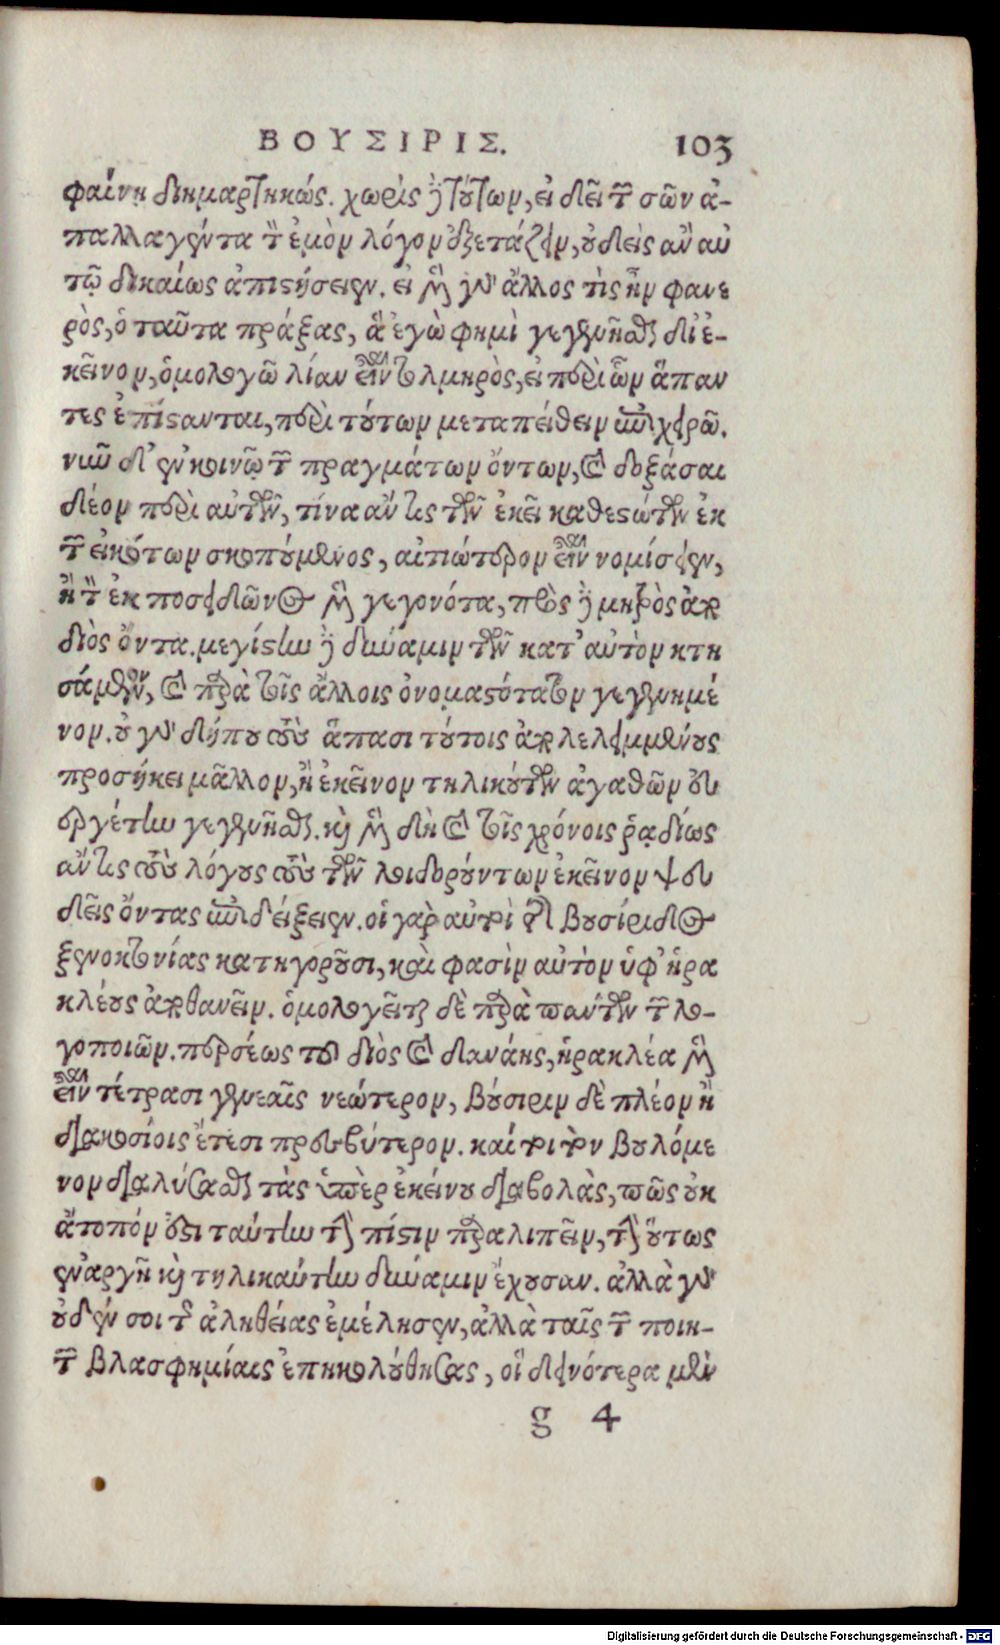 ΒΟΥΣΙΡΙΣ. 103
φαίνῃ διημαρτηκώς. χωρὶς δὲ τούτων, εἰ δεῖ τῶν σῶν ἀ-
παλλαγέντα τὸν ἐμὸν λόγον ἐξετάζειν, οὐδεὶς ἂν αὐ
τῷ δικαίως ἀπιστήσειεν. εἰ μὲν γὰρ ἄλλος τὶς ἦν φανε
ρὸς, ὁ ταῦτα πράξας, ἃ ἐγὼ φημὶ γεγενῆσθαι δι' ἐ-
κεῖνον, ὁμολογῶ λίαν εἶναι τολμηρὸς, εἰ περὶ ὧν ἅπαν
τες ἐπίστανται, περὶ τούτων μεταπείθειν ἐπιχειρῶ.
νῦν δ' ἐν κοινῷ τῶν πραγμάτων ὄντων, καὶ δοξάσαι
δέον περὶ αὐτῶν, τίνα ἄν τις τῶν ἐκεῖ καθεστώτων ἐκ
τῶν εἰκότων σκοπούμενος, αἰτιώτερον εἶναι νομίσειεν,
ἢ τὸν ἐκ ποσειδῶνος μὲν γεγονότα, πρὸς δὲ μητρὸς ἀπὸ
διὸς ὄντα. μεγίστην δὲ δύναμιν τῶν κατ' αὐτὸν κτη
σάμενον, καὶ παρὰ τοῖς ἄλλοις ὀνομαστότατον γεγενημέ
νον. οὐ γὰρ δήπου τοὺς ἅπασι τούτοις ἀπολελειμμένους
προσήκει μᾶλλον, ἢ ἐκεῖνον τηλικούτων ἀγαθῶν εὐ
εργέτην γεγενῆσθαι. καὶ μὲν δὴ καὶ τοῖς χρόνοις ῥᾳδίως
ἄν τις τοὺς λόγους τοὺς τῶν λοιδορούντων ἐκεῖνον ψευ
δεῖς ὄντας ἐπιδείξειεν. οἱ γὰρ αὐτοὶ τῆς βουσίριδος
ξενοκτονίας κατηγοροῦσι, καὶ φασὶν αὐτὸν ὑφ' ἡρα
κλέους ἀποθανεῖν. ὁμολογεῖται δὲ παρὰ πάντων τῶν λο-
γοποιῶν. περσέως τοῦ διὸς καὶ δανάης, ἡρακλέα μὲν
εἶναι τέτρασι γενεαῖς νεώτερον, βούσιριν δὲ πλέον ἢ
διακοσίοις ἔτεσι πρεσβύτερον. καίτοι τὸν βουλόμε
νον διαλύσασθαι τὰς ὑπὲρ ἐκείνου διαβολὰς, πῶς οὐκ
ἄτοπόν ἐστι ταύτην τὴν πίστιν παραλιπεῖν, τὴν οὕτως
ἐναργῆ καὶ τηλικαύτην δύναμιν ἔχουσαν. ἀλλὰ γὰρ
οὐδέν σοι τῆς ἀληθείας ἐμέλησεν, ἀλλὰ ταῖς τῶν ποιη-
τῶν βλασφημίαις ἐπηκολούθησας, οἳ δεινότερα μὲν
g 4
Digitalisierung gefördert durch die Deutsche Forschungsgemeinschaft - DFG